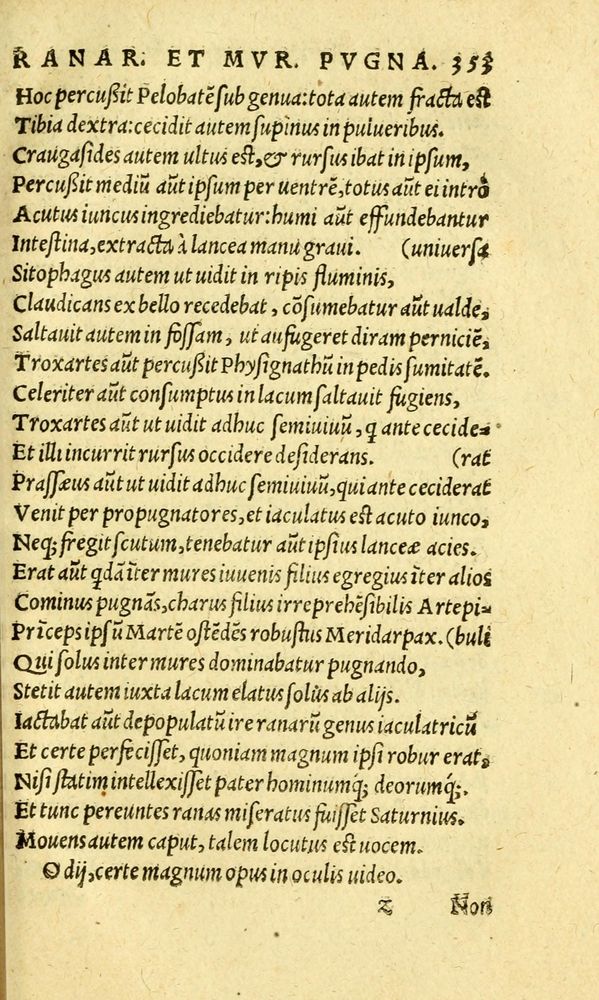 RANAR. ET MVR. PVGNA. 353
Hoc percußit Pelobatē sub genua: tota autem fracta est
Tibia dextra: cecidit autem supinus in pulueribus.
Craugasides autem ultus est, & rursus ibat in ipsum,
Percußit mediū aūt ipsum per uentrē, totus aūt ei intrò
Acutus iuncus ingrediebatur: humi aūt effundebantur
Intestina, extracta à lancea manu graui. (uniuersa
Sitophagus autem ut uidit in ripis fluminis,
Claudicans ex bello recedebat, cōsumebatur aūt ualde,
Saltauit autem in fossam, ut aufugeret diram perniciē,
Troxartes aūt percußit Physignathū in pedis sumitatē.
Celeriter aūt consumptus in lacum saltauit fugiens,
Troxartes aūt ut uidit adhuc semiuiuū, q ante cecide-
Et illi incurrit rursus occidere desiderans. (rat
Prassæus aūt ut uidit adhuc semiuiuū, qui ante ceciderat
Venit per propugnatores, et iaculatus est acuto iunco,
Neq; fregit scutum, tenebatur aūt ipsius lanceæ acies.
Erat aūt qdā īter mures iuuenis filius egregius īter alios
Cominus pugnās, charus filius irreprehēsibilis Artepi-
Prīceps ipsū Martē ostēdēs robustus Meridarpax. (buli
Qui solus inter mures dominabatur pugnando,
Stetit autem iuxta lacum elatus solus ab alijs.
Iactabat aūt depopulatū ire ranarū genus iaculatricū
Et certe perfecisset, quoniam magnum ipsi robur erat,
Nisi statim intellexisset pater hominumq́; deorumq́;.
Et tunc pereuntes ranas miseratus fuisset Saturnius.
Mouens autem caput, talem locutus est uocem.
O dij, certe magnum opus in oculis uideo.
z Non